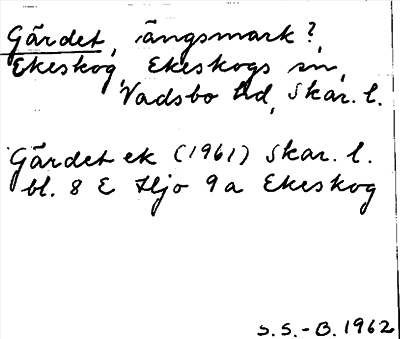 Gärdet, ängsmark?,
Ekeskog, Ekeskogs sn,
Vadsbo hd, Skar. l.
Gärdet ek (1961) Skar. l.
bl. 8 E Hjo 9a Ekeskog
S.S.-B. 1962